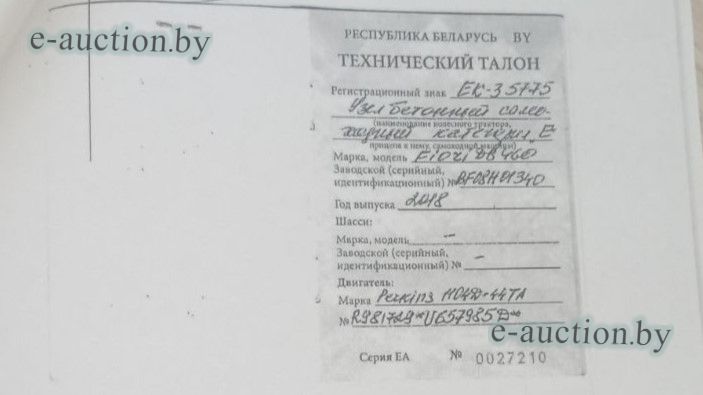 e-auction.by
РЕСПУБЛИКА БЕЛАРУСЬ BY
ТЕХНИЧЕСКИЙ ТАЛОН
Регистрационный знак ЕК-3 5775
Узел бетонный само-
(наименование колесного трактора,
ходный категории E
прицепа к нему, самоходной машины)
Марка, модель Fiori DB 460
Заводской (серийный,
идентификационный) № BF08H01340
Год выпуска 2018
Шасси:
Марка, модель –
Заводской (серийный,
идентификационный) № –
Двигатель:
Марка 1104D-44TA
№ R981729*U657985D*
e-auction.by
Серия ЕА № 0027210